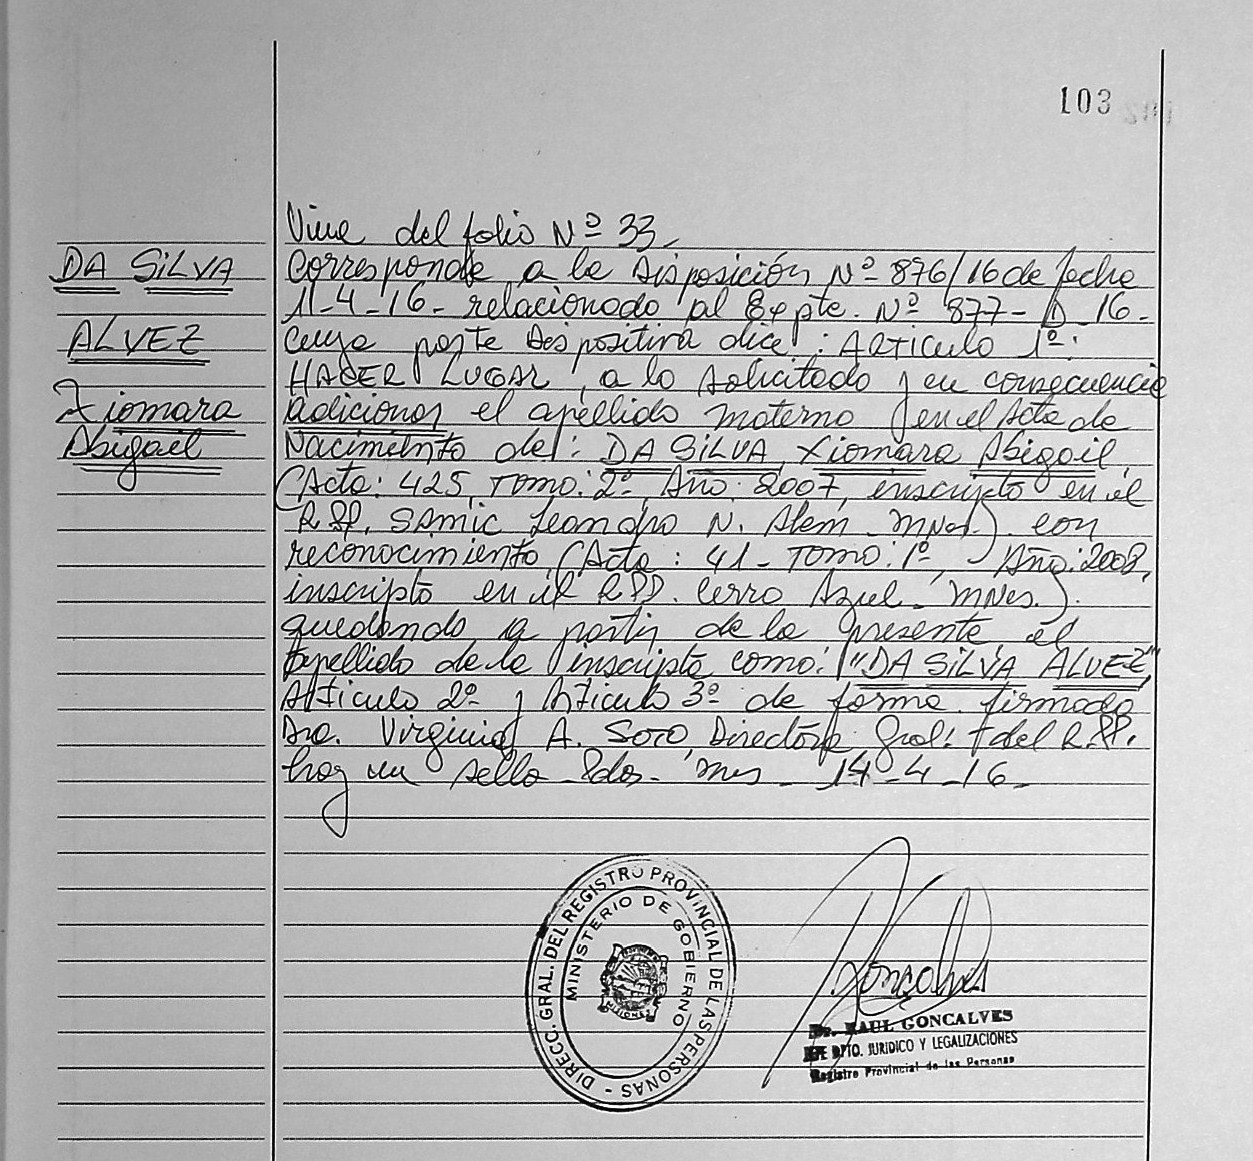 103
Viene del folio Nº 33.
DA SILVA
ALVEZ
Xiomara
Abigail
Corresponde a la Disposición Nº 876/16 de fecha
11-4-16- relacionado al Expte. Nº 877-D-16-
cuya parte Dispositiva dice: Artículo 1º:
HACER LUGAR a lo solicitado y en consecuencia
adicionar el apellido materno en el Acta de
Nacimiento de: DA SILVA Xiomara Abigail,
(Acta: 425, Tomo: 2º, Año: 2007, inscripto en el
R.PP. SAMIC Leandro N. Alem Mnes.) con
reconocimiento (Acta: 41- Tomo: 1º, - Año: 2008,
inscripto en el RPP. Cerro Azul- Mnes.).
quedando a partir de la presente el
apellido de la inscripta como: "DA SILVA ALVEZ",
Artículo 2º y Artículo 3º de forma. firmado
Dra. Virginia A. Soto, Directora Gral. del R.PP.
hay un sello- Pdas- Mnes - 14-4-16-
DIRECC. GRAL. DEL REGISTRO PROVINCIAL DE LAS PERSONAS -
MINISTERIO DE GOBIERNO
MISIONES
Dr. RAUL GONCALVES
JEFE DPTO. JURIDICO Y LEGALIZACIONES
Registro Provincial de las Personas